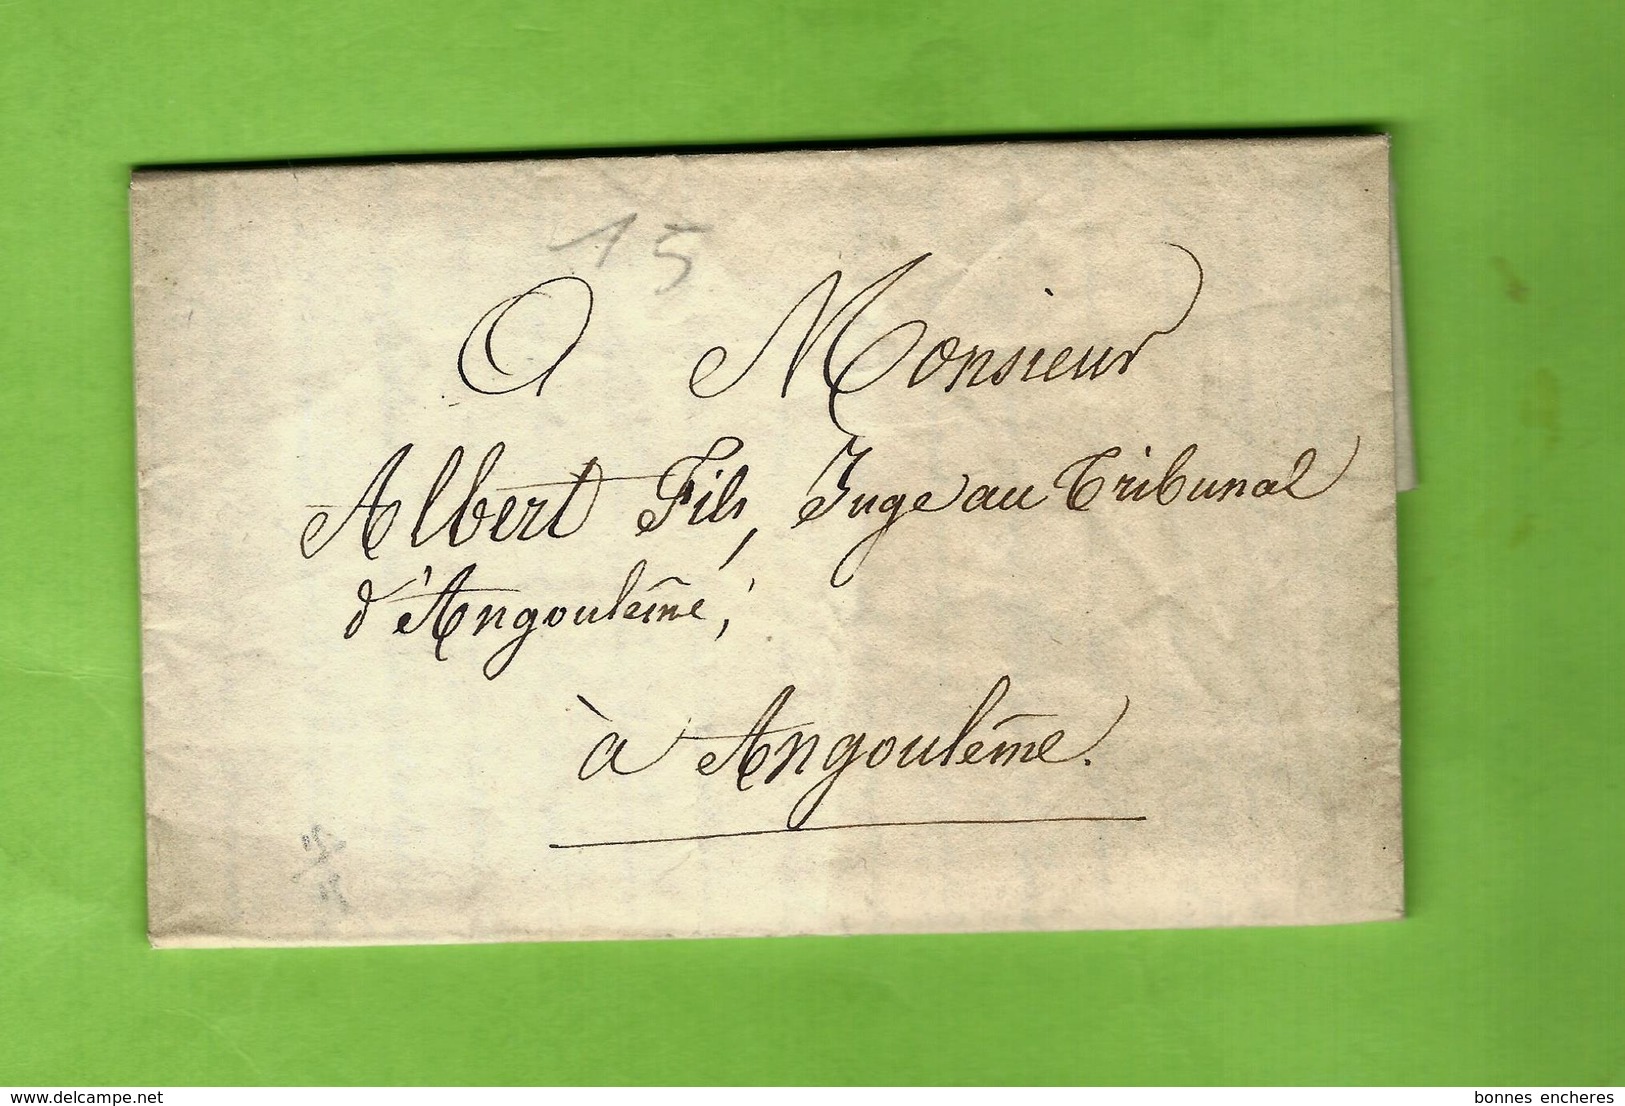 15
A Monsieur
Albert Fils, Juge au Tribunal
d'Angoulême,
à Angoulême.
www.delcampe.net
bonnes encheres